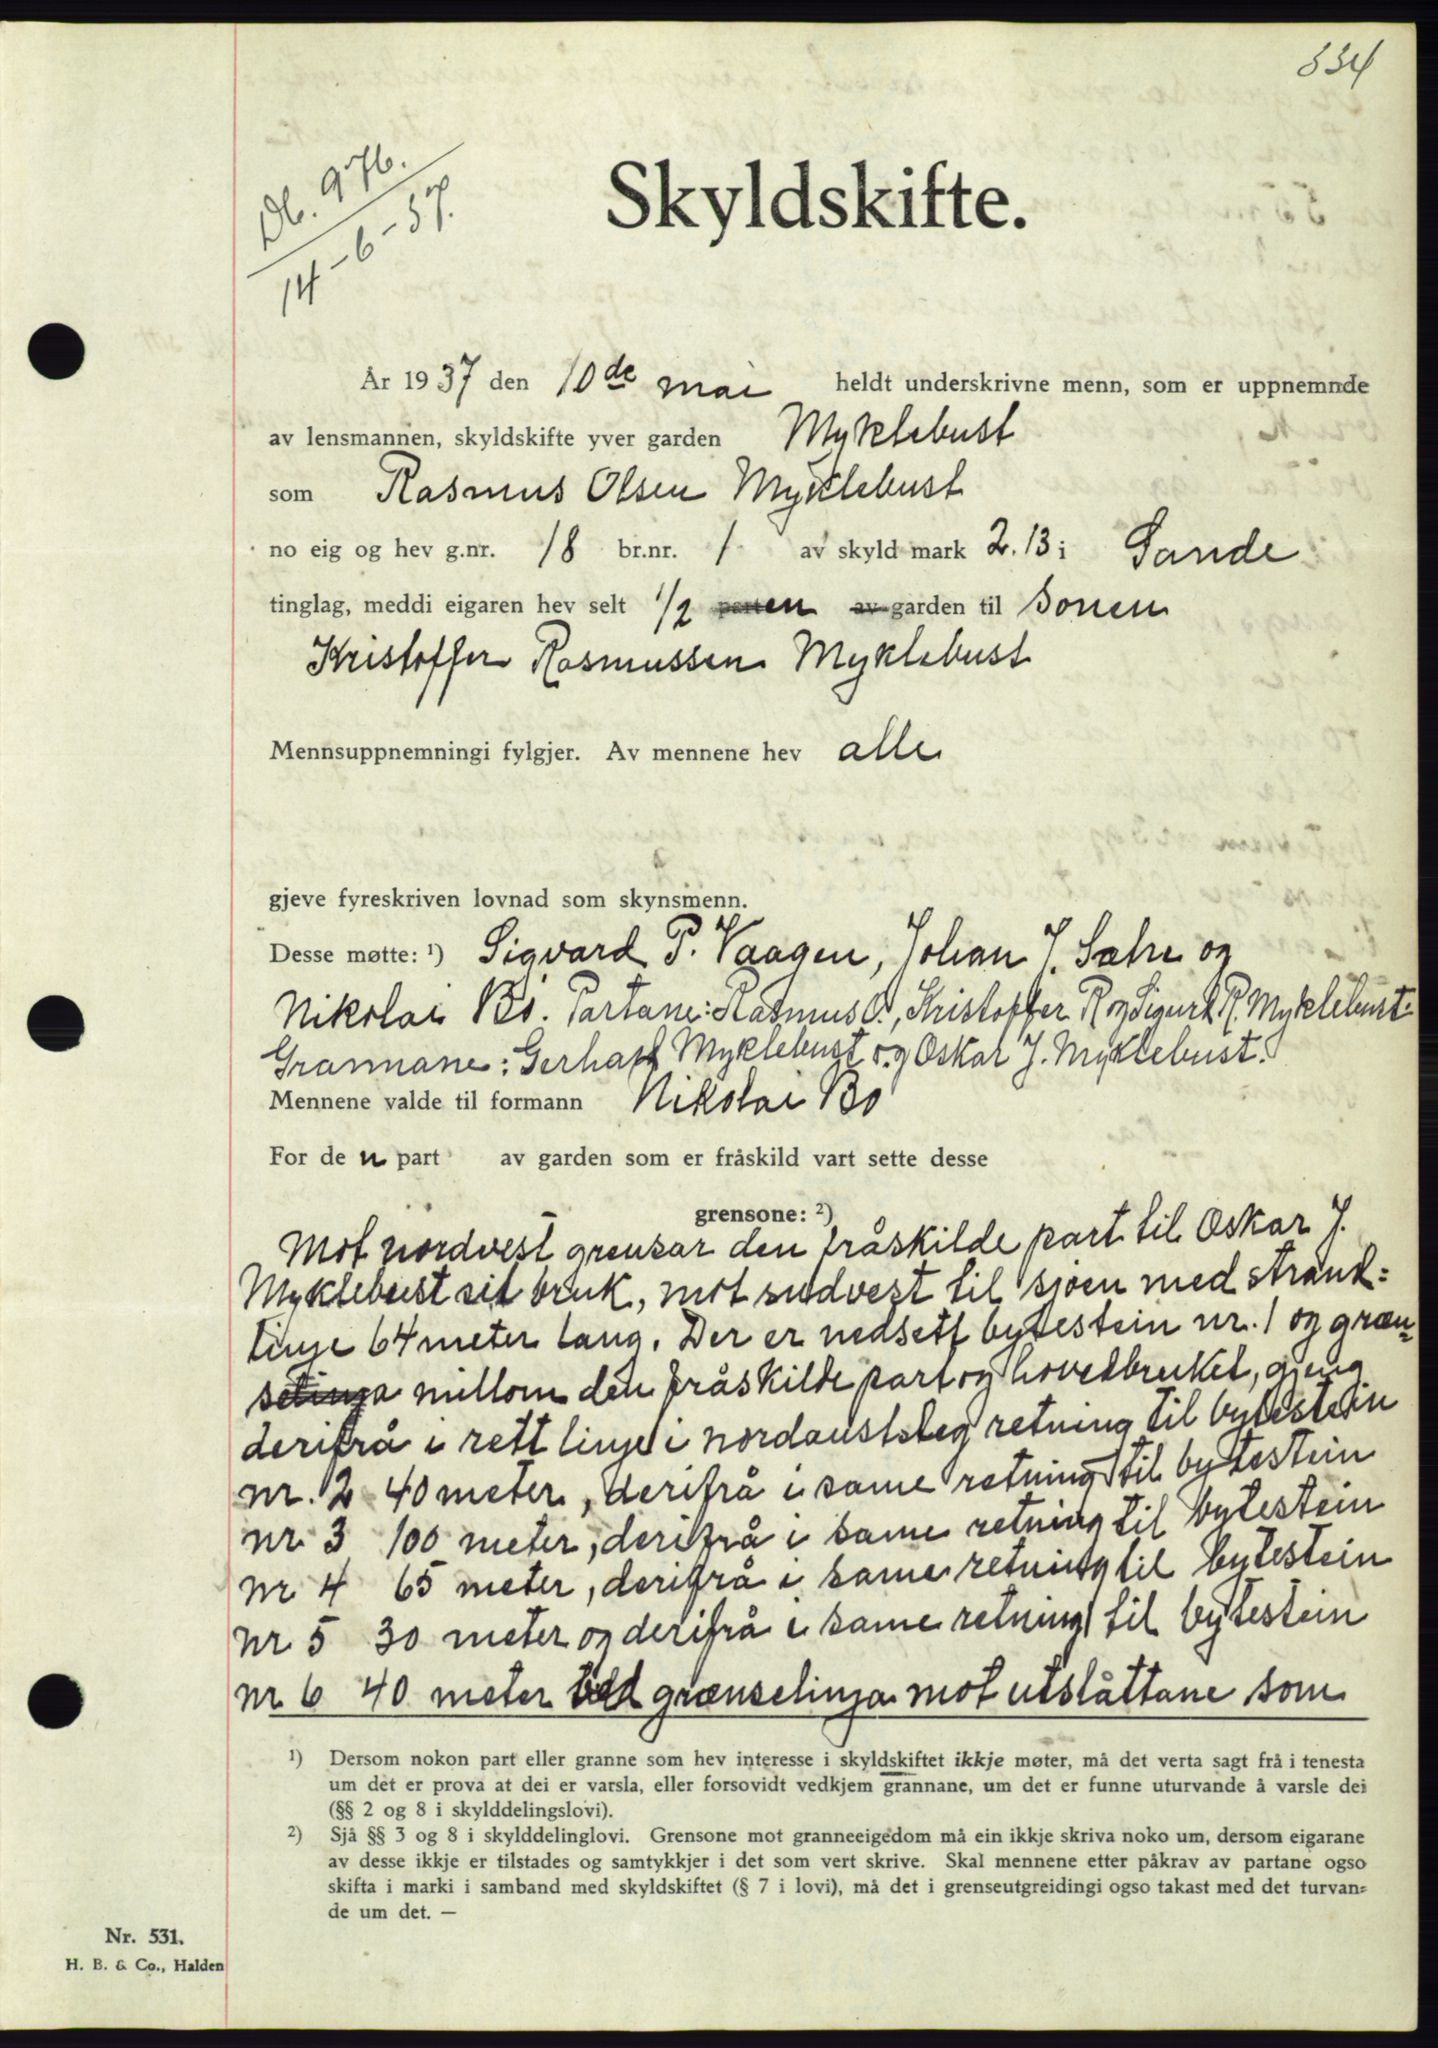 334
Db. 976.
14-6-37.
Skyldskifte.
År 1937 den 10de mai heldt underskrivne menn, som er uppnemnde
av lensmannen, skyldskifte yver garden Myklebust
som Rasmus Olsen Myklebust
no eig og hev g.nr. 18 br.nr. 1 av skyld mark 2.13 i Sande
tinglag, meddi eigaren hev selt 1/2 parten av garden til sonen
Kristoffer Rasmussen Myklebust
Mennsuppnemningi fylgjer. Av mennene hev alle
gjeve fyreskriven lovnad som skynsmenn.
Desse møtte: 1) Sigvard P. Vaagen, Johan J. Sætre og
Nikolai Bø. Partane: Rasmus O., Kristoffer R og Sigurd R. Myklebust
Grannane: Gerhard Myklebust og Oskar J. Myklebust.
Mennene valde til formann Nikolai Bø
For den part av garden som er fråskild vart sette desse
grensone: 2)
Mot nordvest grensar den fråskilde part til Oskar J.
Myklebust sit bruk, mot sudvest til sjøen med strand=
linje 64 meter lang. Der er nedsett bytestein nr. 1 og græn=
selinja millom den fråskilde part og hovedbruket, gjeng
derifrå i rett linje i nordaustsleg retning til bytestein
nr. 2 40 meter, derifrå i same retning til bytestein
nr 3 100 meter, derifrå i same retning til bytestein
nr 4 65 meter, derifrå i same retning til bytestein
nr 5 30 meter og derifrå i same retning til bytestein
nr 6 40 meter ved grænselinja mot utslåttane som
1) Dersom nokon part eller granne som hev interesse i skyldskiftet ikkje møter, må det verta sagt frå i tenesta
um det er prova at dei er varsla, eller forsovidt vedkjem grannane, um det er funne uturvande å varsle dei
(§§ 2 og 8 i skylddelingslovi).
2) Sjå §§ 3 og 8 i skylddelinglovi. Grensone mot granneeigedom må ein ikkje skriva noko um, dersom eigarane
av desse ikkje er tilstades og samtykkjer i det som vert skrive. Skal mennene etter påkrav av partane ogso
skifta i marki i samband med skyldskiftet (§ 7 i lovi), må det i grenseutgreidingi ogso takast med det turvan=
de um det. —
Nr. 531.
H. B. & Co., Halden